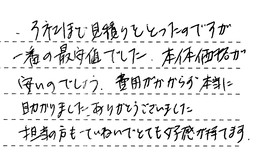 ・3社ほど見積りをとったのですが
一番の最安値でした。本体価格が
安いのでしょう。費用がかからず本当に
助かりました。ありがとうございました
担当の方もていねいでとても好感が持てます。